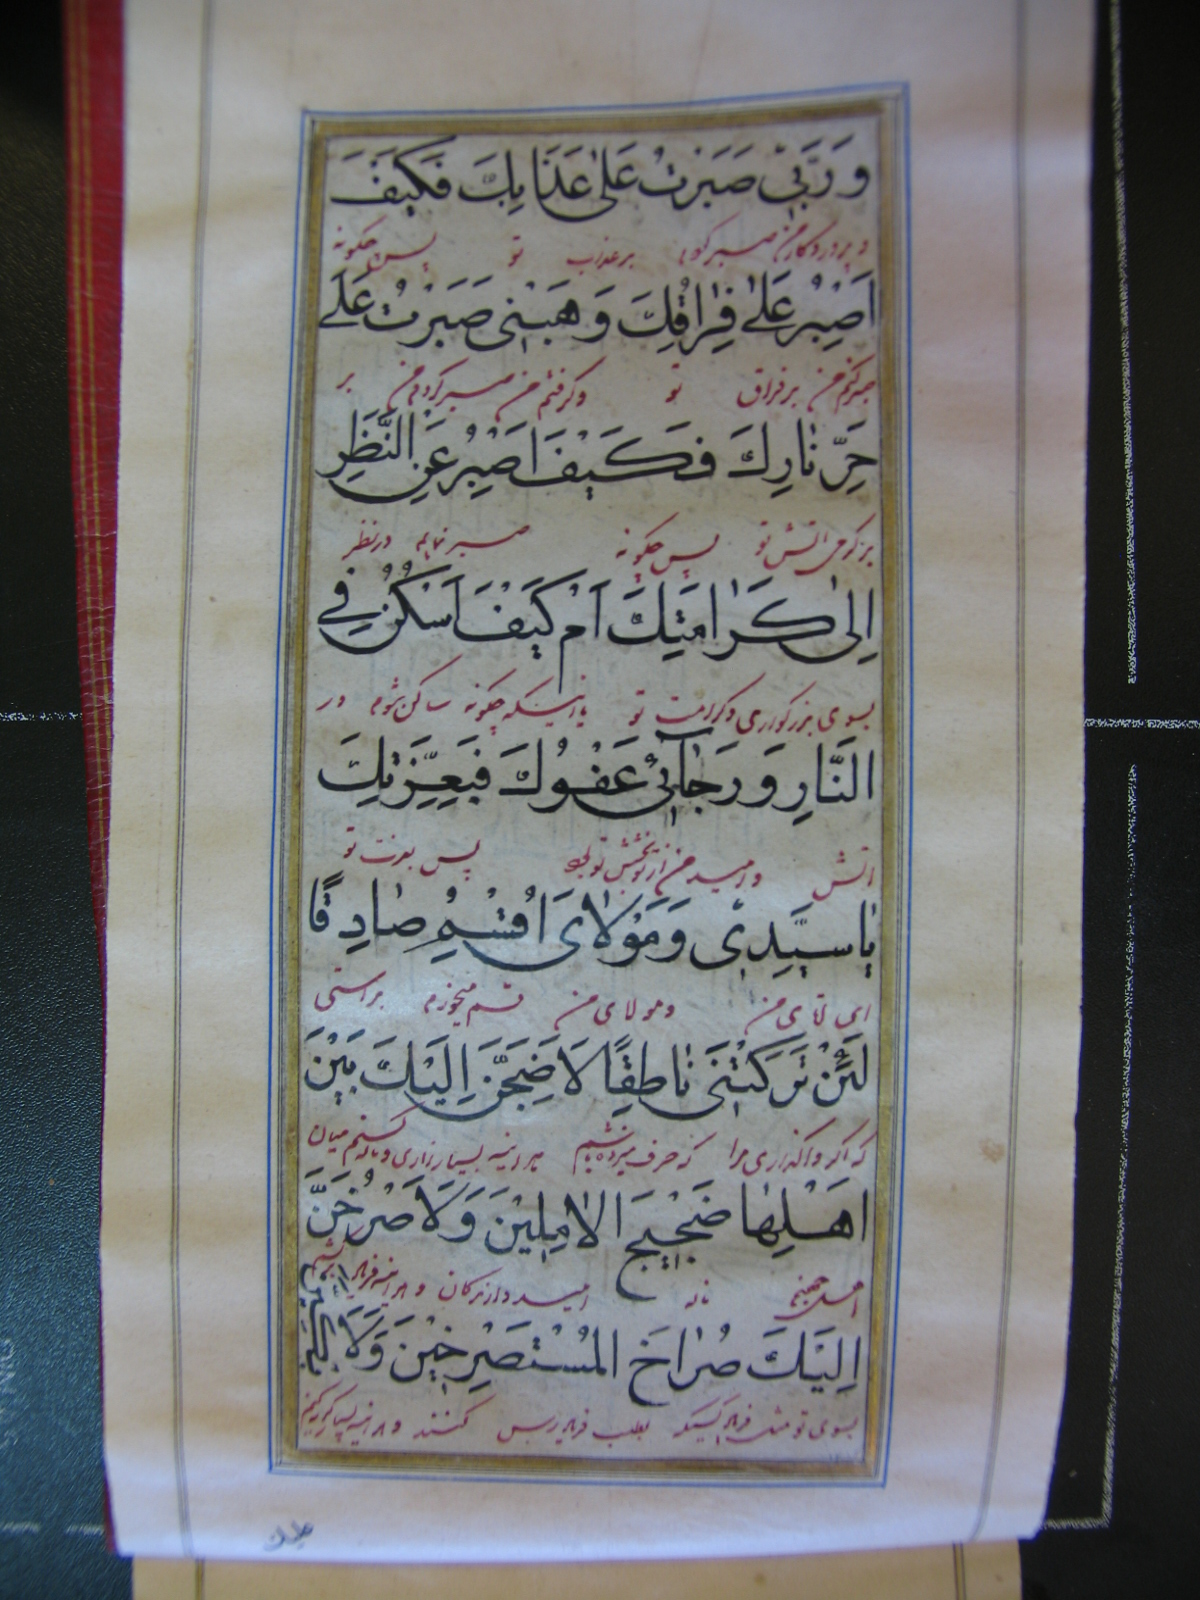 وَ رَبّی صَبَرْتُ عَلیٰ عَذَابِكَ فَكَیْفَ
و پروردکار من صبر کردم بر عذاب تو پس چکونه
اَصْبِرُ عَلیٰ فِرٰاقِكَ وَ هَبْنی صَبَرْتُ عَلیٰ
صبر کنم من بر فراق تو و کرفتم من صبر کردم من بر
حَرِّ نٰارِكَ فَكَیْفَ اَصْبِرُ عَنِ النَّظَرِ
بر کرمی اتش تو پس چکونه صبر نمایم در نظر
اِلیٰ كَرٰامَتِكَ اَمْ كَیْفَ اَسْكُنُ فِی
بسوی بزرکواری و کرامت تو یا اینکه چکونه ساکن شوم در
النَّارِ وَ رَجٰائی عَفْوُكَ فَبِعِزَّتِكَ
اتش و امید من از تو بخشش پس بعزت تو
یٰا سَیِّدی وَ مَوْلاٰیَ اُقْسِمُ صٰادِقًا
ای اقای من و مولای من قسم میخورم براستی
لَئِنْ تَرَكْتَنی نٰاطِقًا لَاَضِجَّنَّ اِلَیْكَ بَیْنَ
که اکر واکذاری مرا که حرف میزده باشم هر اینه بسیار زاری و ناله کنم میان
اَهْلِهٰا ضَجیجَ الاٰمِلینَ وَ لَاَصْرُخَنَّ
اهل جهنم ناله امیدوارندکان و هر اینه فریاد
اِلَیْكَ صُرٰاخَ الْمُسْتَصْرِخینَ وَ لَاَبْكِیَنَّ
بسوی تو مثل فریاد کسیکه بطلب فریادرس کنند و هر اینه کریه کنم
علیك